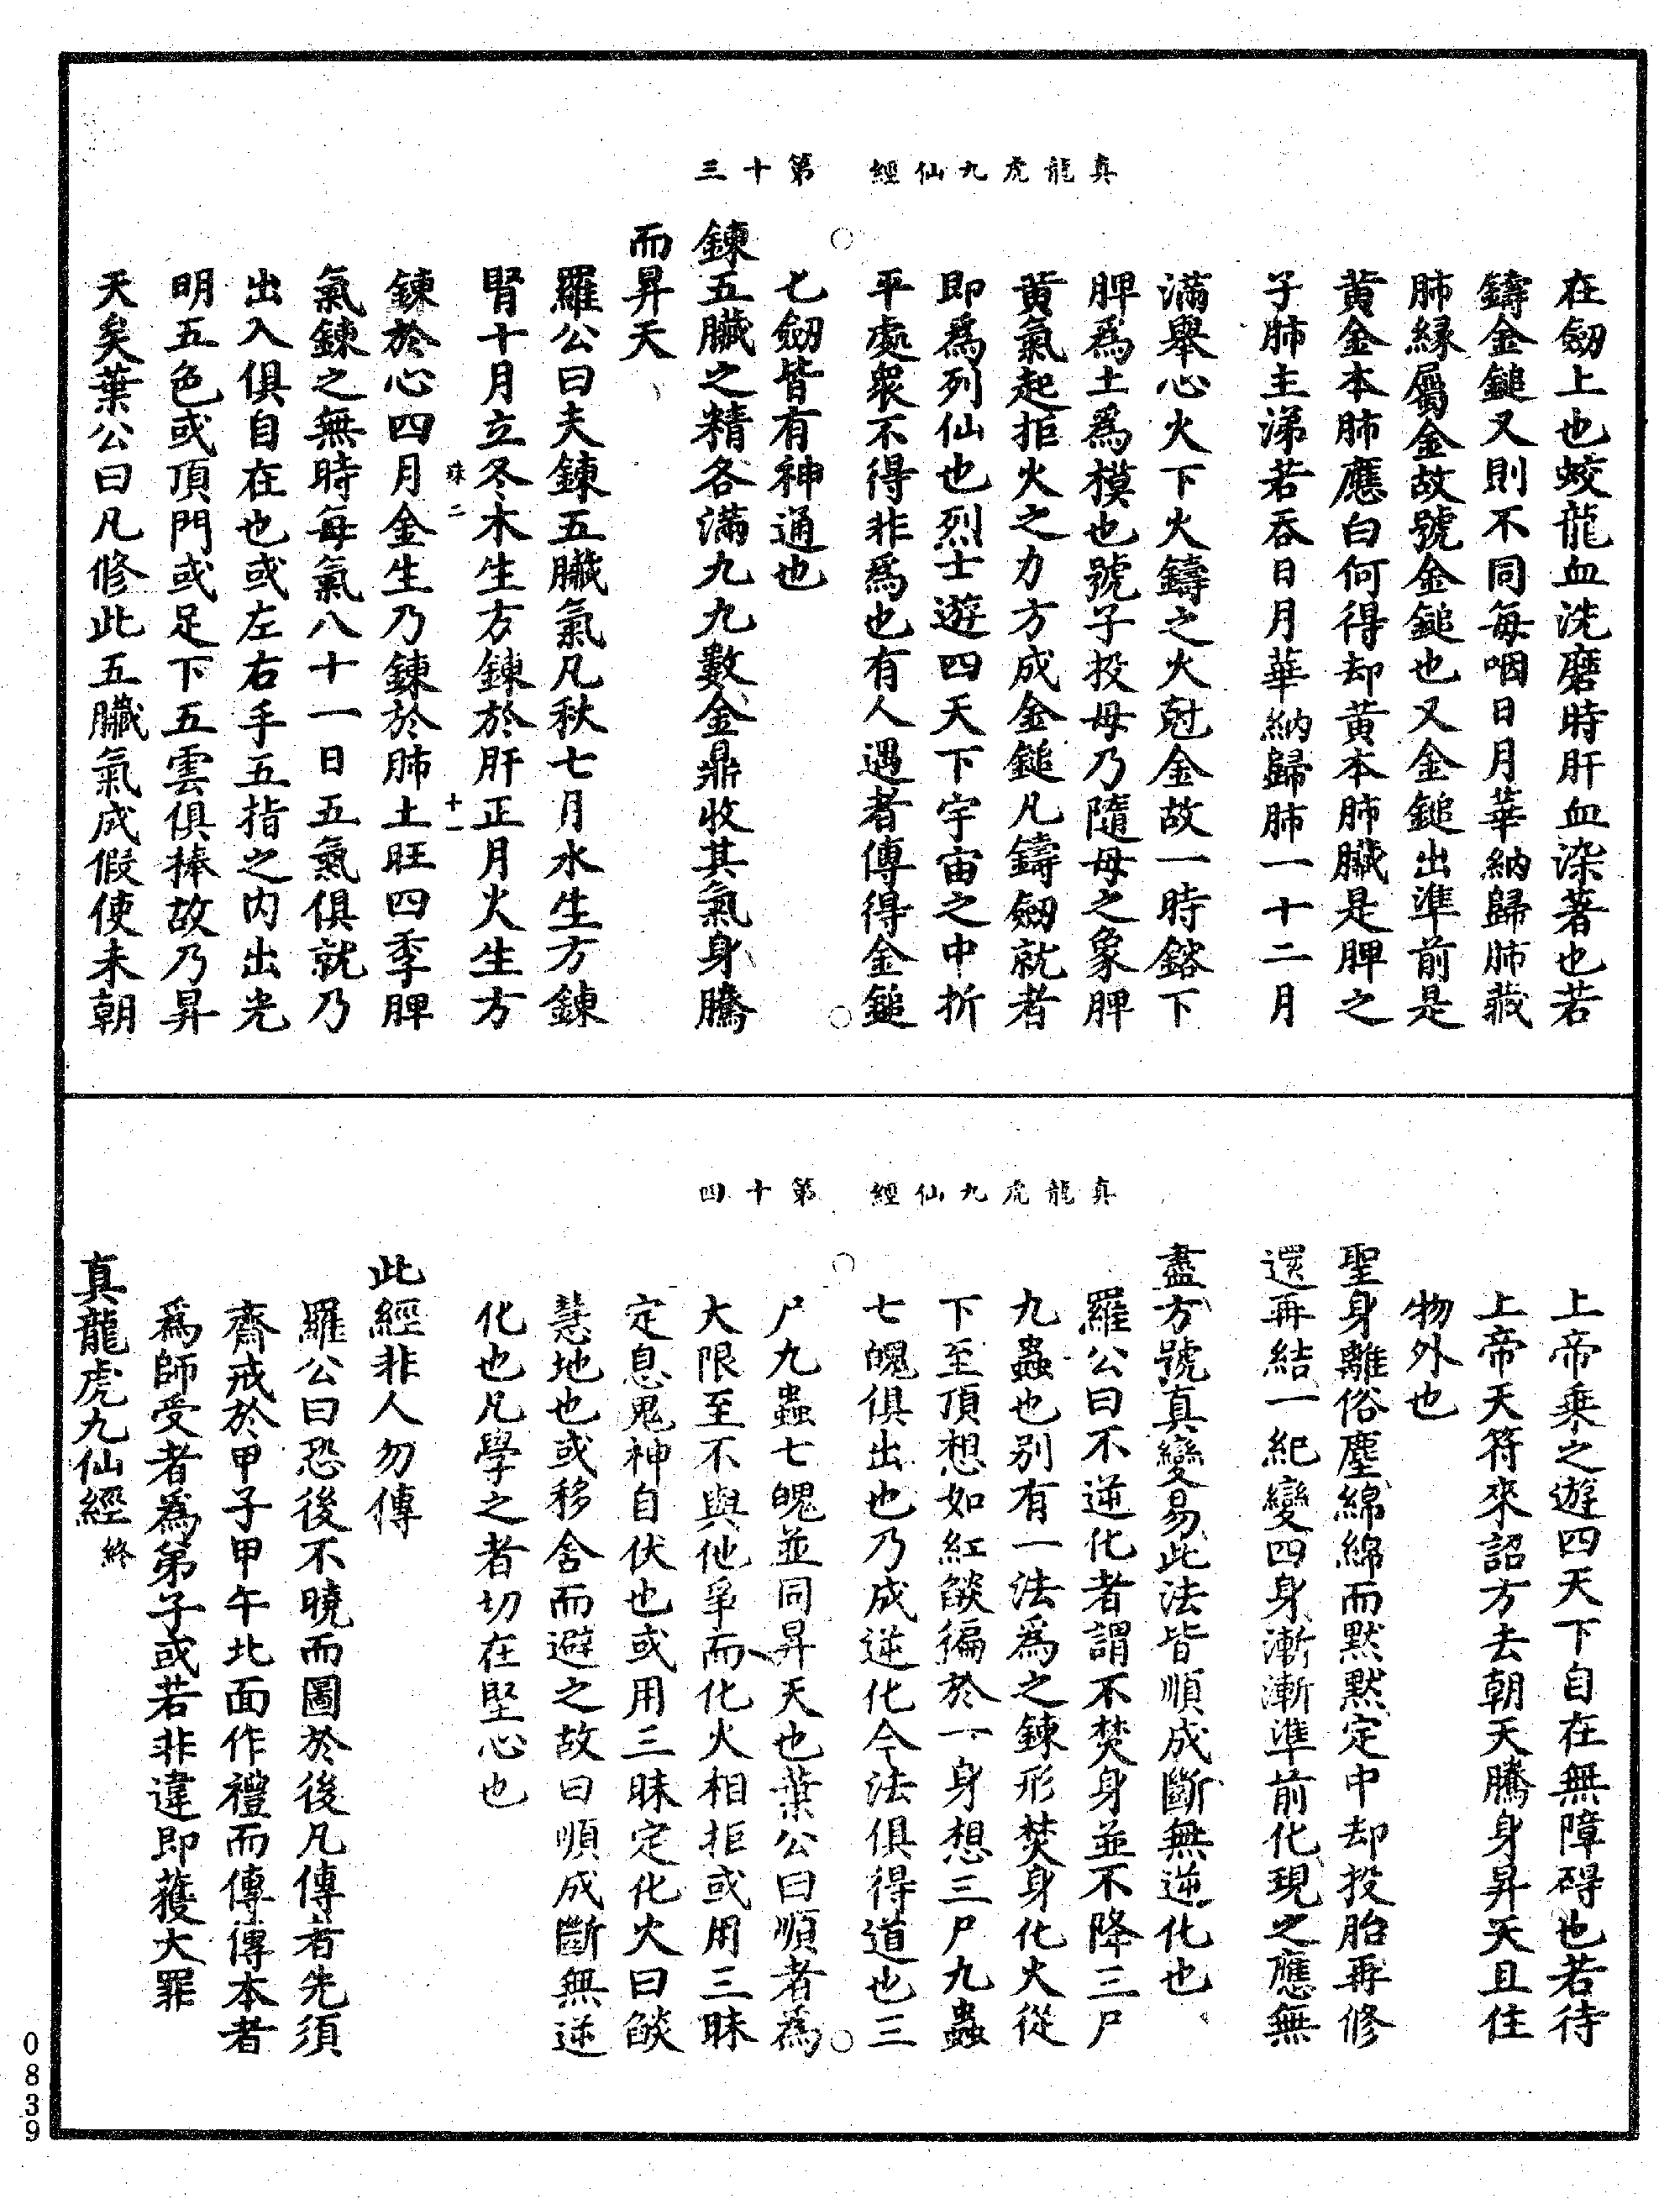 真龍虎九仙經　第十三
在劒上也蛟龍血洗磨時肝血染著也若
鑄金鎚又則不同每咽日月華納歸肺藏
肺緣屬金故號金鎚也又金鎚出準前是
黃金本肺應白何得却黃本肺臟是脾之
子肺主涕若吞日月華納歸肺一十二月
滿舉心火下火鑄之火尅金故一時鎔下
脾爲土爲模也號子投母乃隨母之象脾
黃氣起拒火之力方成金鎚凡鑄劒就者
即爲列仙也烈士遊四天下宇宙之中折
平處衆不得非爲也有人遇者傳得金鎚
七劒皆有神通也
鍊五臟之精各滿九九數金鼎收其氣身騰
而昇天
羅公曰夫鍊五臟氣凡秋七月水生方鍊
腎十月立冬木生方鍊於肝正月火生方
珠二　十一
鍊於心四月金生乃鍊於肺土旺四季脾
氣鍊之無時每氣八十一日五氣俱就乃
出入俱自在也或左右手五指之內出光
明五色或頂門或足下五雲俱捧故乃昇
天矣葉公曰凡修此五臟氣成假使未朝
真龍虎九仙經　第十四
上帝乘之遊四天下自在無障碍也若待
上帝天符來詔方去朝天騰身昇天且住
物外也
聖身離俗塵綿綿而默默定中却投胎再修
還再結一紀變四身漸漸準前化現之應無
盡方號真變易此法皆順成斷無逆化也
羅公曰不逆化者謂不焚身並不降三尸
九蟲也別有一法爲之鍊形焚身化火從
下至頂想如紅燄徧於一身想三尸九蟲
七魄俱出也乃成逆化今法俱得道也三
尸九蟲七魄並同昇天也葉公曰順者爲
大限至不與他爭而化火相拒或用三昧
定息鬼神自伏也或用三昧定化火曰燄
慧地也或移舍而避之故曰順成斷無逆
化也凡學之者切在堅心也
此經非人勿傳
羅公曰恐後不曉而圖於後凡傳者先須
齋戒於甲子甲午北面作禮而傳傳本者
爲師受者爲弟子或若非違即獲大罪
真龍虎九仙經終
0839